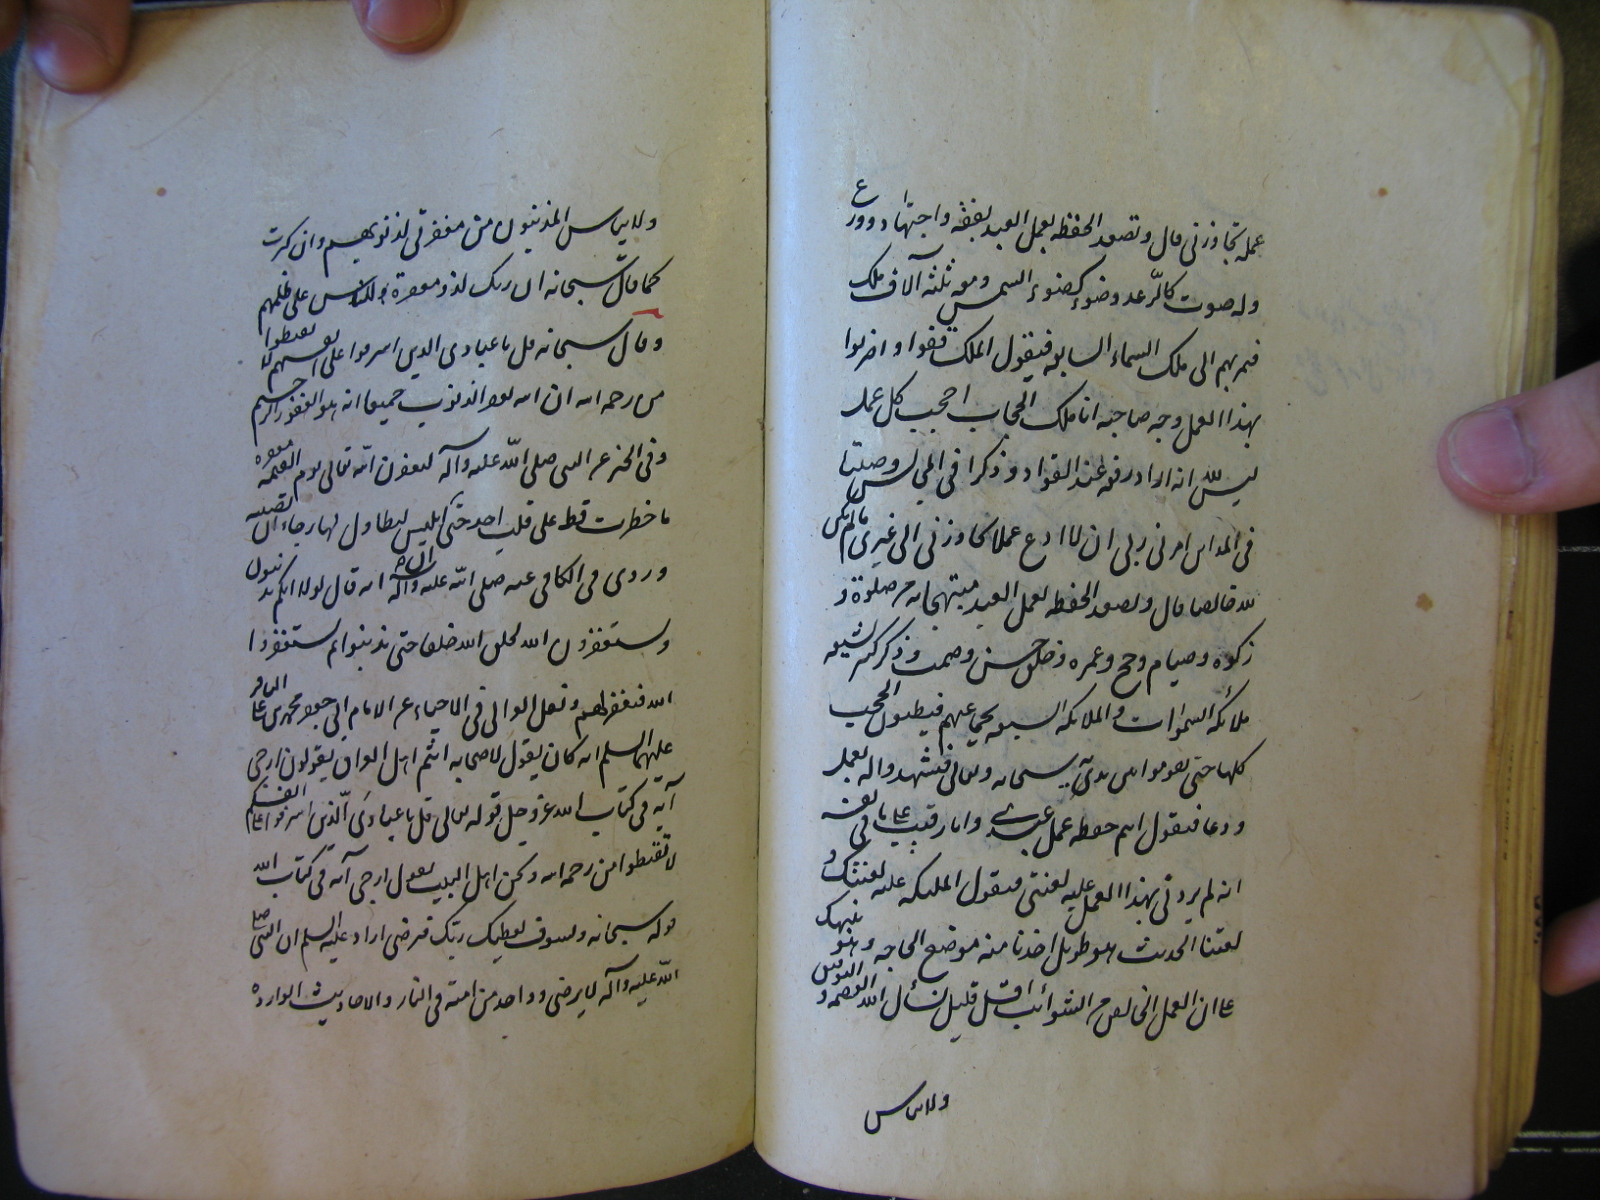 عمله تجاوزنی قال وتصعد الحفظة بعمل العبد بفقه واجتهاد وورع
وله صوت کالرعد وضوء کضوء الشمس ومعه ثلثة آلاف ملک
فیمر بهم الی ملک السماء السابعة فیقول الملک قفوا واضربوا
بهذا العمل وجه صاحبه انا ملک الحجاب احجب کل عمل
لیس لله انه اراد رفعة عند القواد وذکرا فی المجالس وصیتا
فی المداین امرنی ربی ان لا ادع عملا یجاوزنی الی غیری ما لم یکن
لله خالصا قال وتصعد الحفظة بعمل العبد مبتهجا به من صلوة و
زکوة وصیام وحج وعمرة وخلق حسن وصمت وذکر کثیر تشیعه
ملائکة السموات والملائکة السبعة بجماعتهم فیطئون الحجب
کلها حتی یقوموا بین یدیه سبحانه وتعالی فیشهدوا له بعمل
ودعا فیقول انتم حفظة عمل عبدی وانا رقیب علی ما فی نفسه
انه لم یردنی بهذا العمل علیه لعنتی فیقول الملئکة علیه لعنتک و
لعنتنا الحدیث هو طویل اخذنا منه موضع الحاجة وهو ینبهک
علی ان العمل الخالص من الشوائب اقل قلیل نسأل الله العصمة و التوفیق
ولا ییاس
ولا ییاس المذنبون من مغفرتی لذنوبهم وان کثرت
کما قال سبحانه ان ربک لذو مغفرة للناس علی ظلمهم
وقال سبحانه قل یا عبادی الذین اسرفوا علی انفسهم لا تقنطوا
من رحمة الله ان الله یغفر الذنوب جمیعا انه هو الغفور الرحیم
وفی الخبر عن النبی صلی الله علیه وآله لیغفرن الله تعالی یوم القیمة مغفرة
ما خطرت قط علی قلب احد حتی ابلیس لیطاول لها رجاء ان تصیبه
وروی فی الکافی عنه صلی الله علیه وآله انه قال لولا انکم تذنبون
وتستغفرون الله لخلق الله خلقا حتی یذنبوا ثم یستغفروا
الله فیغفر لهم ونقل الغزالی فی الاحیاء عن الامام ابی جعفر محمد بن علی الباقر
علیهما السلم انه کان یقول لاصحابه انتم اهل العراق یقولون ارجی
آیة فی کتاب الله عز وجل قوله تعالی قل یا عبادی الذین اسرفوا علی انفسهم
لا تقنطوا من رحمة الله ونحن اهل البیت نقول ارجی آیة فی کتاب الله
قوله سبحانه ولسوف یعطیک ربک فترضی اراد علیه السلم ان النبی صلی
الله علیه وآله لا یرضی وواحد من امته فی النار والاحادیث الواردة